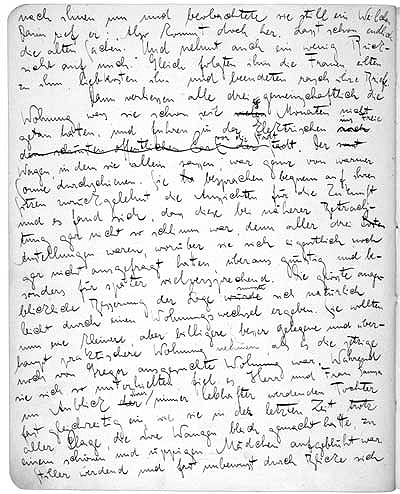 nach ihnen um und beobachtete sie still ein Weilchen
Dann rief er: Also kommt doch her. Lasst schon endlich
die alten Sachen. Und nehmt auch ein wenig Rück-
sicht auf mich. Gleich folgten ihm die Frauen, eilten
zu ihm, liebkosten ihn und beendeten rasch ihre Briefe.
Dann verliessen alle drei gemeinschaftlich die
Wohnung was sie schon seit Monaten nicht
getan hatten, und fuhren mit der Elektrischen ins Freie
vor die Stadt. Der
Wagen, in dem sie allein sassen war ganz von warmer
Sonne durchschienen. Sie besprachen bequem auf ihren
Sitzen zurückgelehnt die Aussichten für die Zukunft
und es fand sich, dass diese bei näherer Betrach-
tung gar nicht so schlimm war, denn aller drei
Anstellungen waren, worüber sie sich eigentlich noch
gar nicht ausgefragt hatten überaus günstig und be-
sonders für später vielversprechend. Die grösste augen-
blickliche Besserung der Lage musste sich natürlich
leicht durch einen Wohnungswechsel ergeben. Sie wollten
nun eine kleinere, aber billigere besser gelegene und über-
haupt praktischere Wohnung nehmen als es die jetzige
noch von Gregor ausgesuchte Wohnung war. Während
sie sich so unterhielten fiel es Herrn und Frau Samsa
im Anblick ihrer immer lebhafter werdenden Tochter
fast gleichzeitig ein wie sie in der letzten Zeit trotz
aller Plage, die ihre Wangen bleich gemacht hatte zu
einem schönen und üppigen Mädchen aufgeblüht war
Stiller werdend und fast unbewusst durch Blicke sich